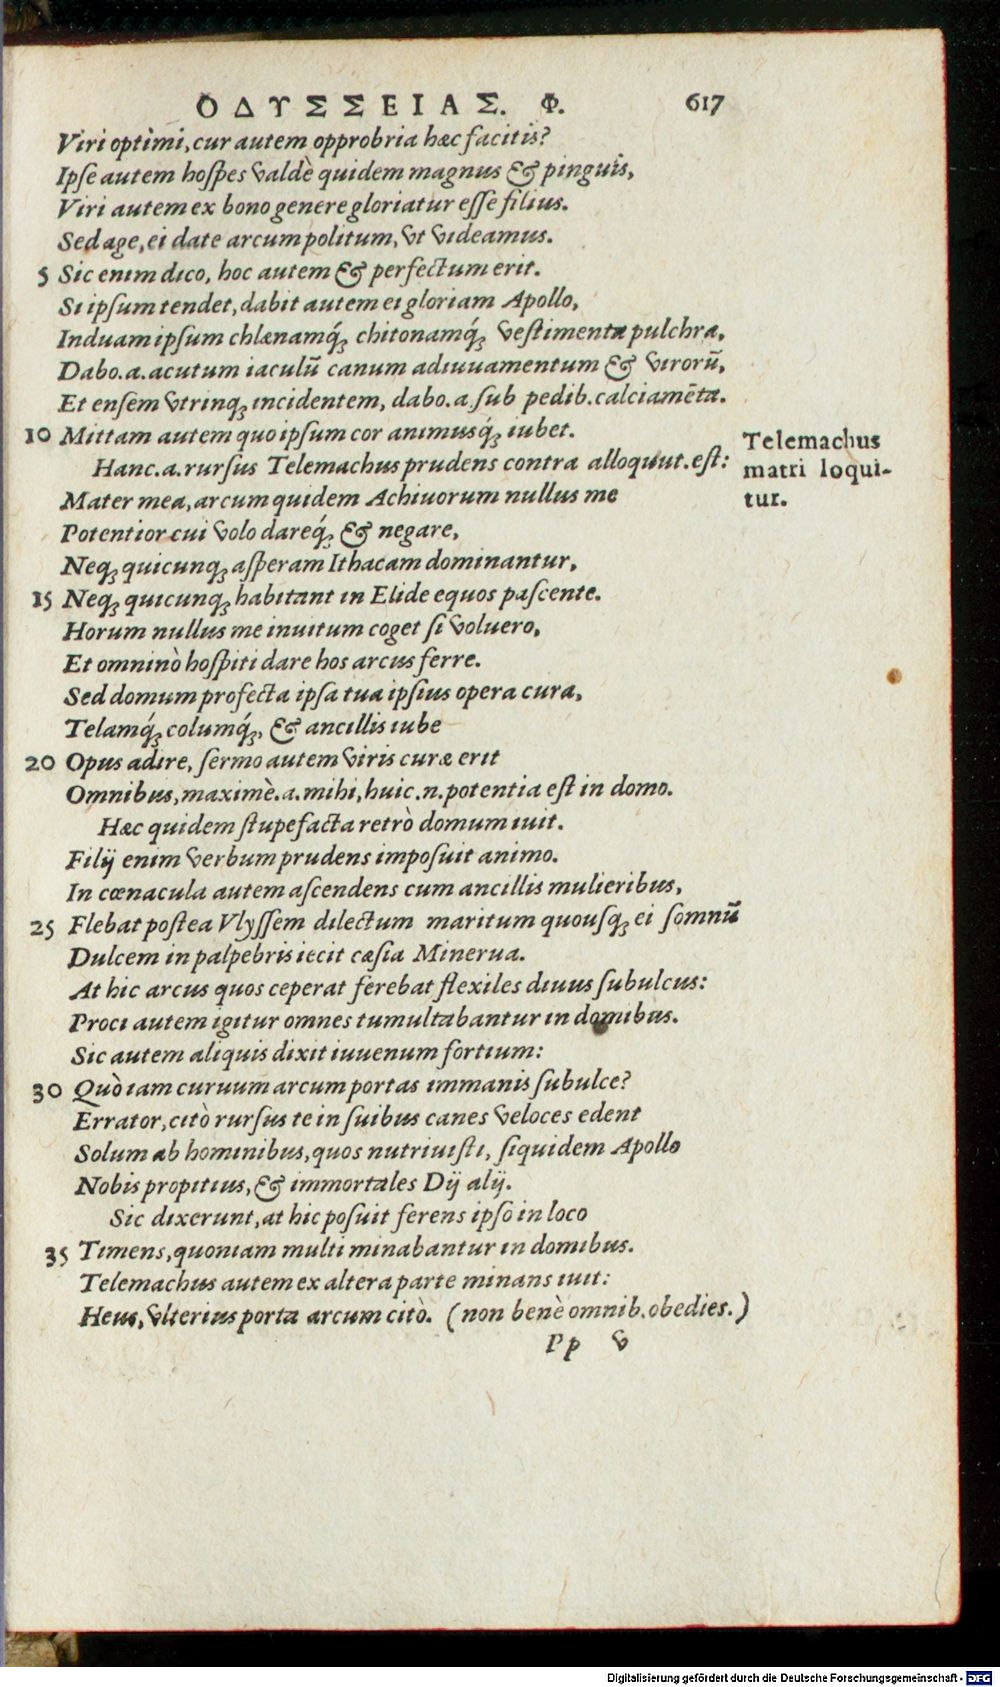 ΟΔΥΣΣΕΙΑΣ. Φ. 617
Viri optimi, cur autem opprobria hæc facitis?
Ipſe autem hoſpes valdè quidem magnus & pinguis,
Viri autem ex bono genere gloriatur eſſe filius.
Sed age, ei date arcum politum, vt videamus.
5 Sic enim dico, hoc autem & perfectum erit.
Si ipſum tendet, dabit autem ei gloriam Apollo,
Induam ipſum chlænamq́; chitonamq́; veſtimenta pulchra,
Dabo .a. acutum iaculū canum adiuuamentum & virorū,
Et enſem vtrinq; incidentem, dabo .a. ſub pedib. calciamēta.
10 Mittam autem quo ipſum cor animusq́; iubet.
Hanc .a. rurſus Telemachus prudens contra alloquut. eſt:
Telemachus
matri loqui-
tur.
Mater mea, arcum quidem Achiuorum nullus me
Potentior cui volo dareq́; & negare,
Neq; quicunq; aſperam Ithacam dominantur,
15 Neq; quicunq; habitant in Elide equos paſcente.
Horum nullus me inuitum coget ſi voluero,
Et omninò hoſpiti dare hos arcus ferre.
Sed domum profecta ipſa tua ipſius opera cura,
Telamq́; columq́;, & ancillis iube
20 Opus adire, ſermo autem viris curæ erit
Omnibus, maximè .a. mihi, huic .n. potentia eſt in domo.
Hæc quidem ſtupefacta retrò domum iuit.
Filij enim verbum prudens impoſuit animo.
In cœnacula autem aſcendens cum ancillis mulieribus,
25 Flebat poſtea Vlyſſem dilectum maritum quouſq; ei ſomnū
Dulcem in palpebris iecit cæſia Minerua.
At hic arcus quos ceperat ferebat flexiles diuus ſubulcus:
Proci autem igitur omnes tumultabantur in domibus.
Sic autem aliquis dixit iuuenum fortium:
30 Quò iam curuum arcum portas immanis ſubulce?
Errator, citò rurſus te in ſuibus canes veloces edent
Solum ab hominibus, quos nutriuiſti, ſiquidem Apollo
Nobis propitius, & immortales Dij alij.
Sic dixerunt, at hic poſuit ferens ipſo in loco
35 Timens, quoniam multi minabantur in domibus.
Telemachus autem ex altera parte minans iuit:
Heus, vlterius porta arcum citò. (non benè omnib. obedies.)
Pp v
Digitalisierung gefördert durch die Deutsche Forschungsgemeinschaft - DFG